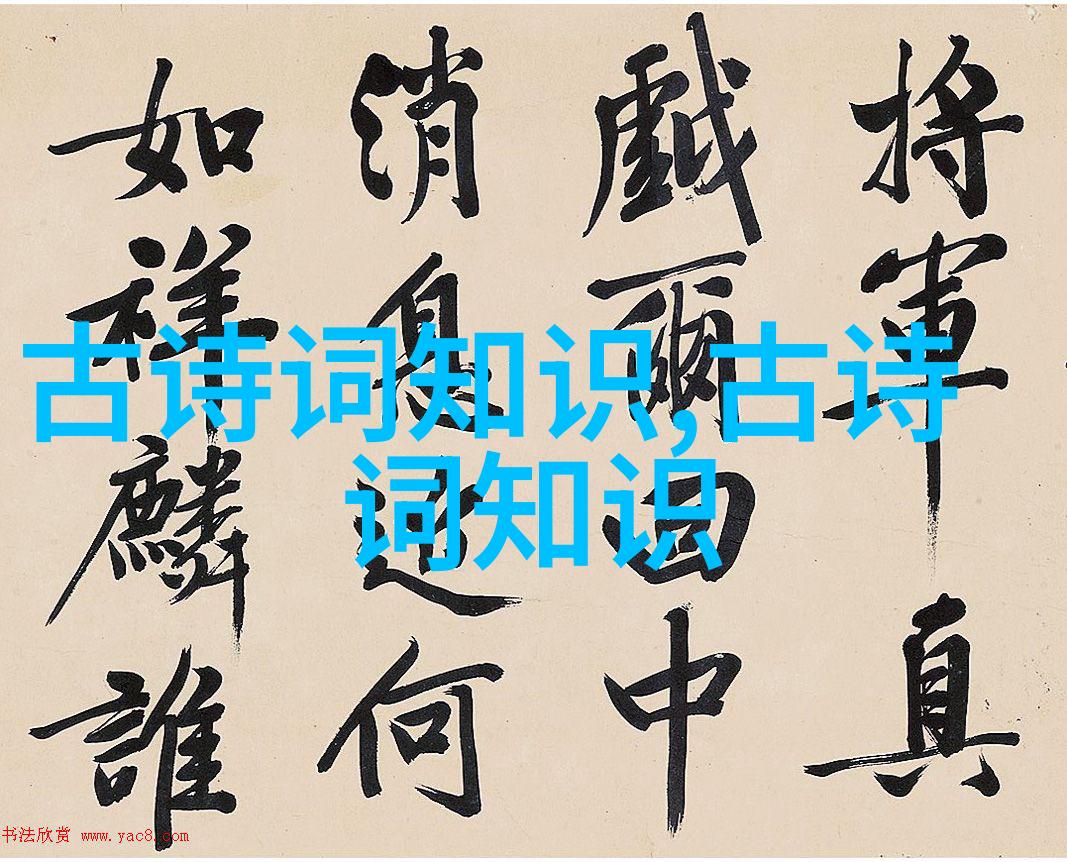 將軍真
戲爾中
消息何
如祥麟誰
古诗词知识,古诗
词知识
书法欣赏 www.yac8.com